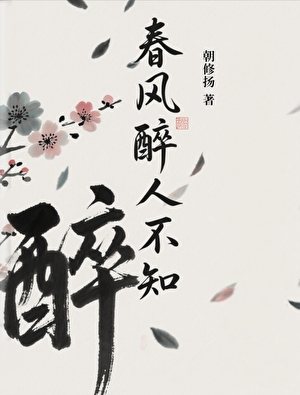 朝修扬 著
春风醉人不知
醉